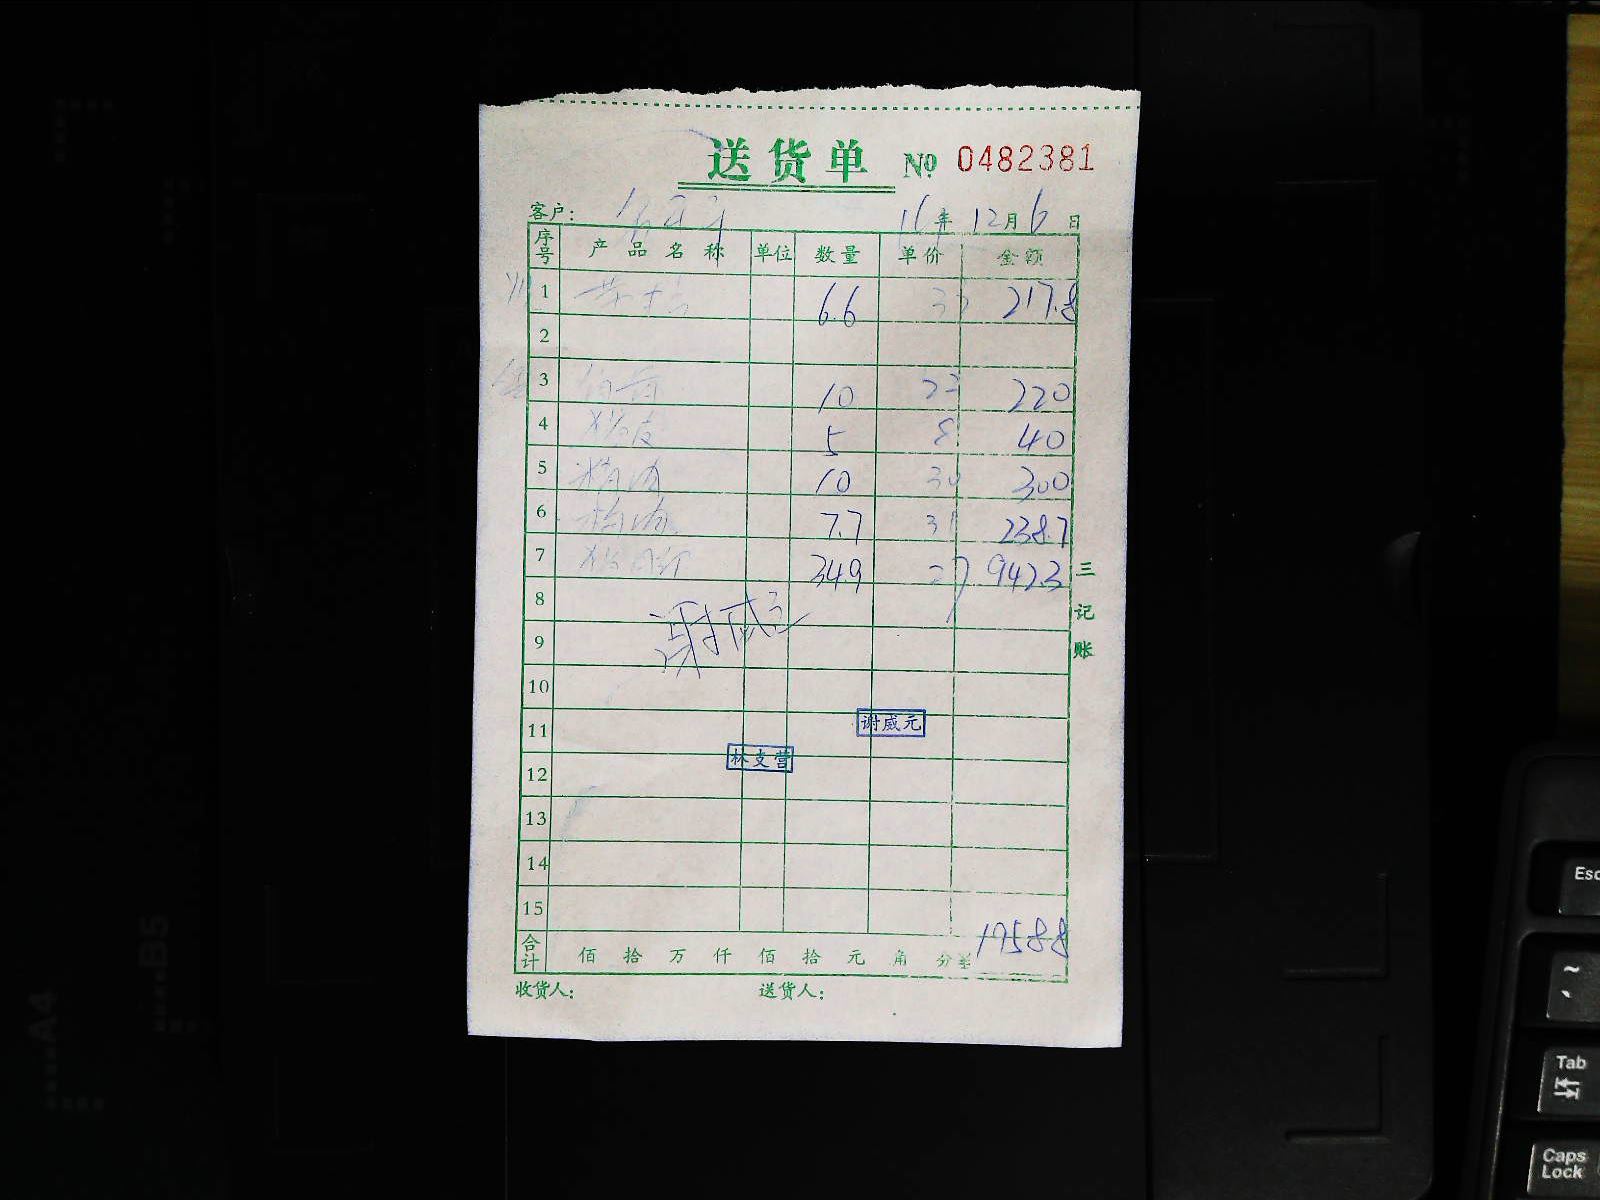 送货单 № 0482381
客户： 16年 12月 6日
序号 产品名称 单位 数量 单价 金额
1 6.6 33 217.8
2
3 10 22 220
4 猪皮 5 8 40
5 精肉 10 30 300
6 7.7 31 238.7
7 34.9 27 942.3
8
谢威元
9
10
11 谢威元
12 林支营
13
14
15
合计 佰 拾 万 仟 佰 拾 元 角 分 1958.8
收货人： 送货人：
三记账
....A4
....B5
Esc
~
Tab
Caps Lock